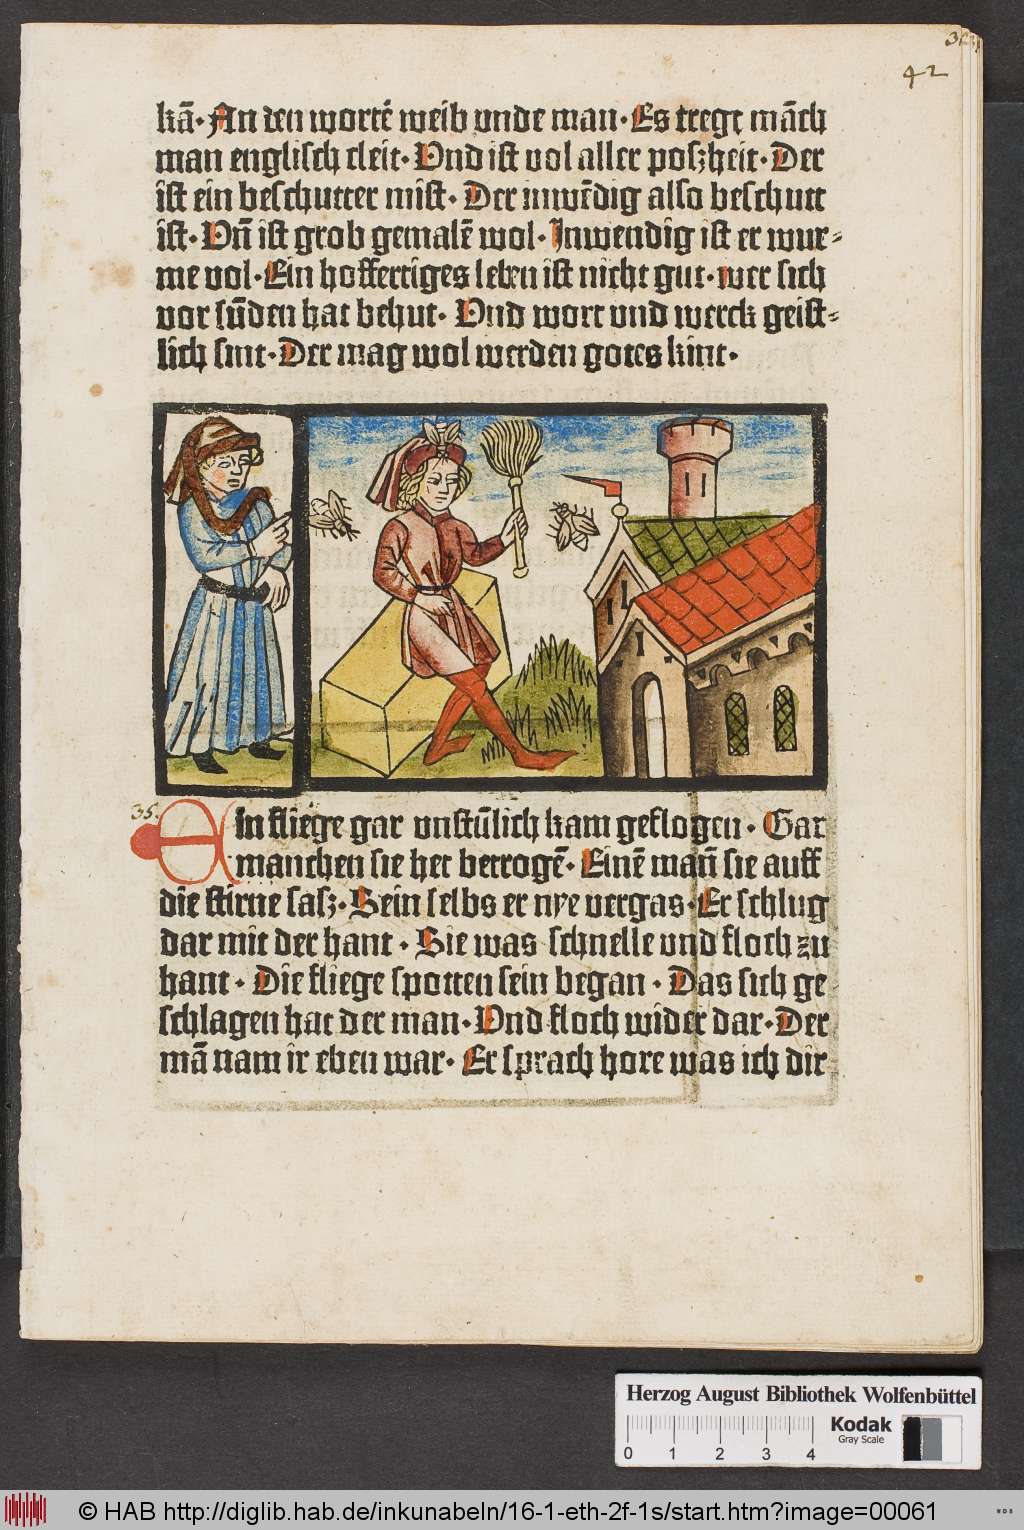 42
kā· An den wortē weib unde man· Es tregt māch
man englisch cleit· Und ist vol aller poszheit· Der
ist ein beschutter mist· Der inwēdig also beschutt
ist· Vn̄ ist grob gemalē wol· Inwendig ist er wur⸗
me vol· Ein hoffertiges leben ist nicht gut· wer sich
vor sūden hat behut· Und wort und werck geist⸗
lich sint· Der mag wol werden gotes kint·
35.
Ein fliege gar vnstūlich kam geflogen· Gar
manchen sie het betrogē· Einē man̄ sie auff
die stirne sasz· Sein selbs er nye vergas· Er schlug
dar mit der hant· Sie was schnelle und floch zu
hant· Die fliege spotten sein began· Das sich ge
schlagen hat der man· Und floch wider dar· Der
mā nam ir eben war· Er sprach hore was ich dir
Herzog August Bibliothek Wolfenbüttel
Kodak
Gray Scale
0 1 2 3 4
© HAB http://diglib.hab.de/inkunabeln/16-1-eth-2f-1s/start.htm?image=00061